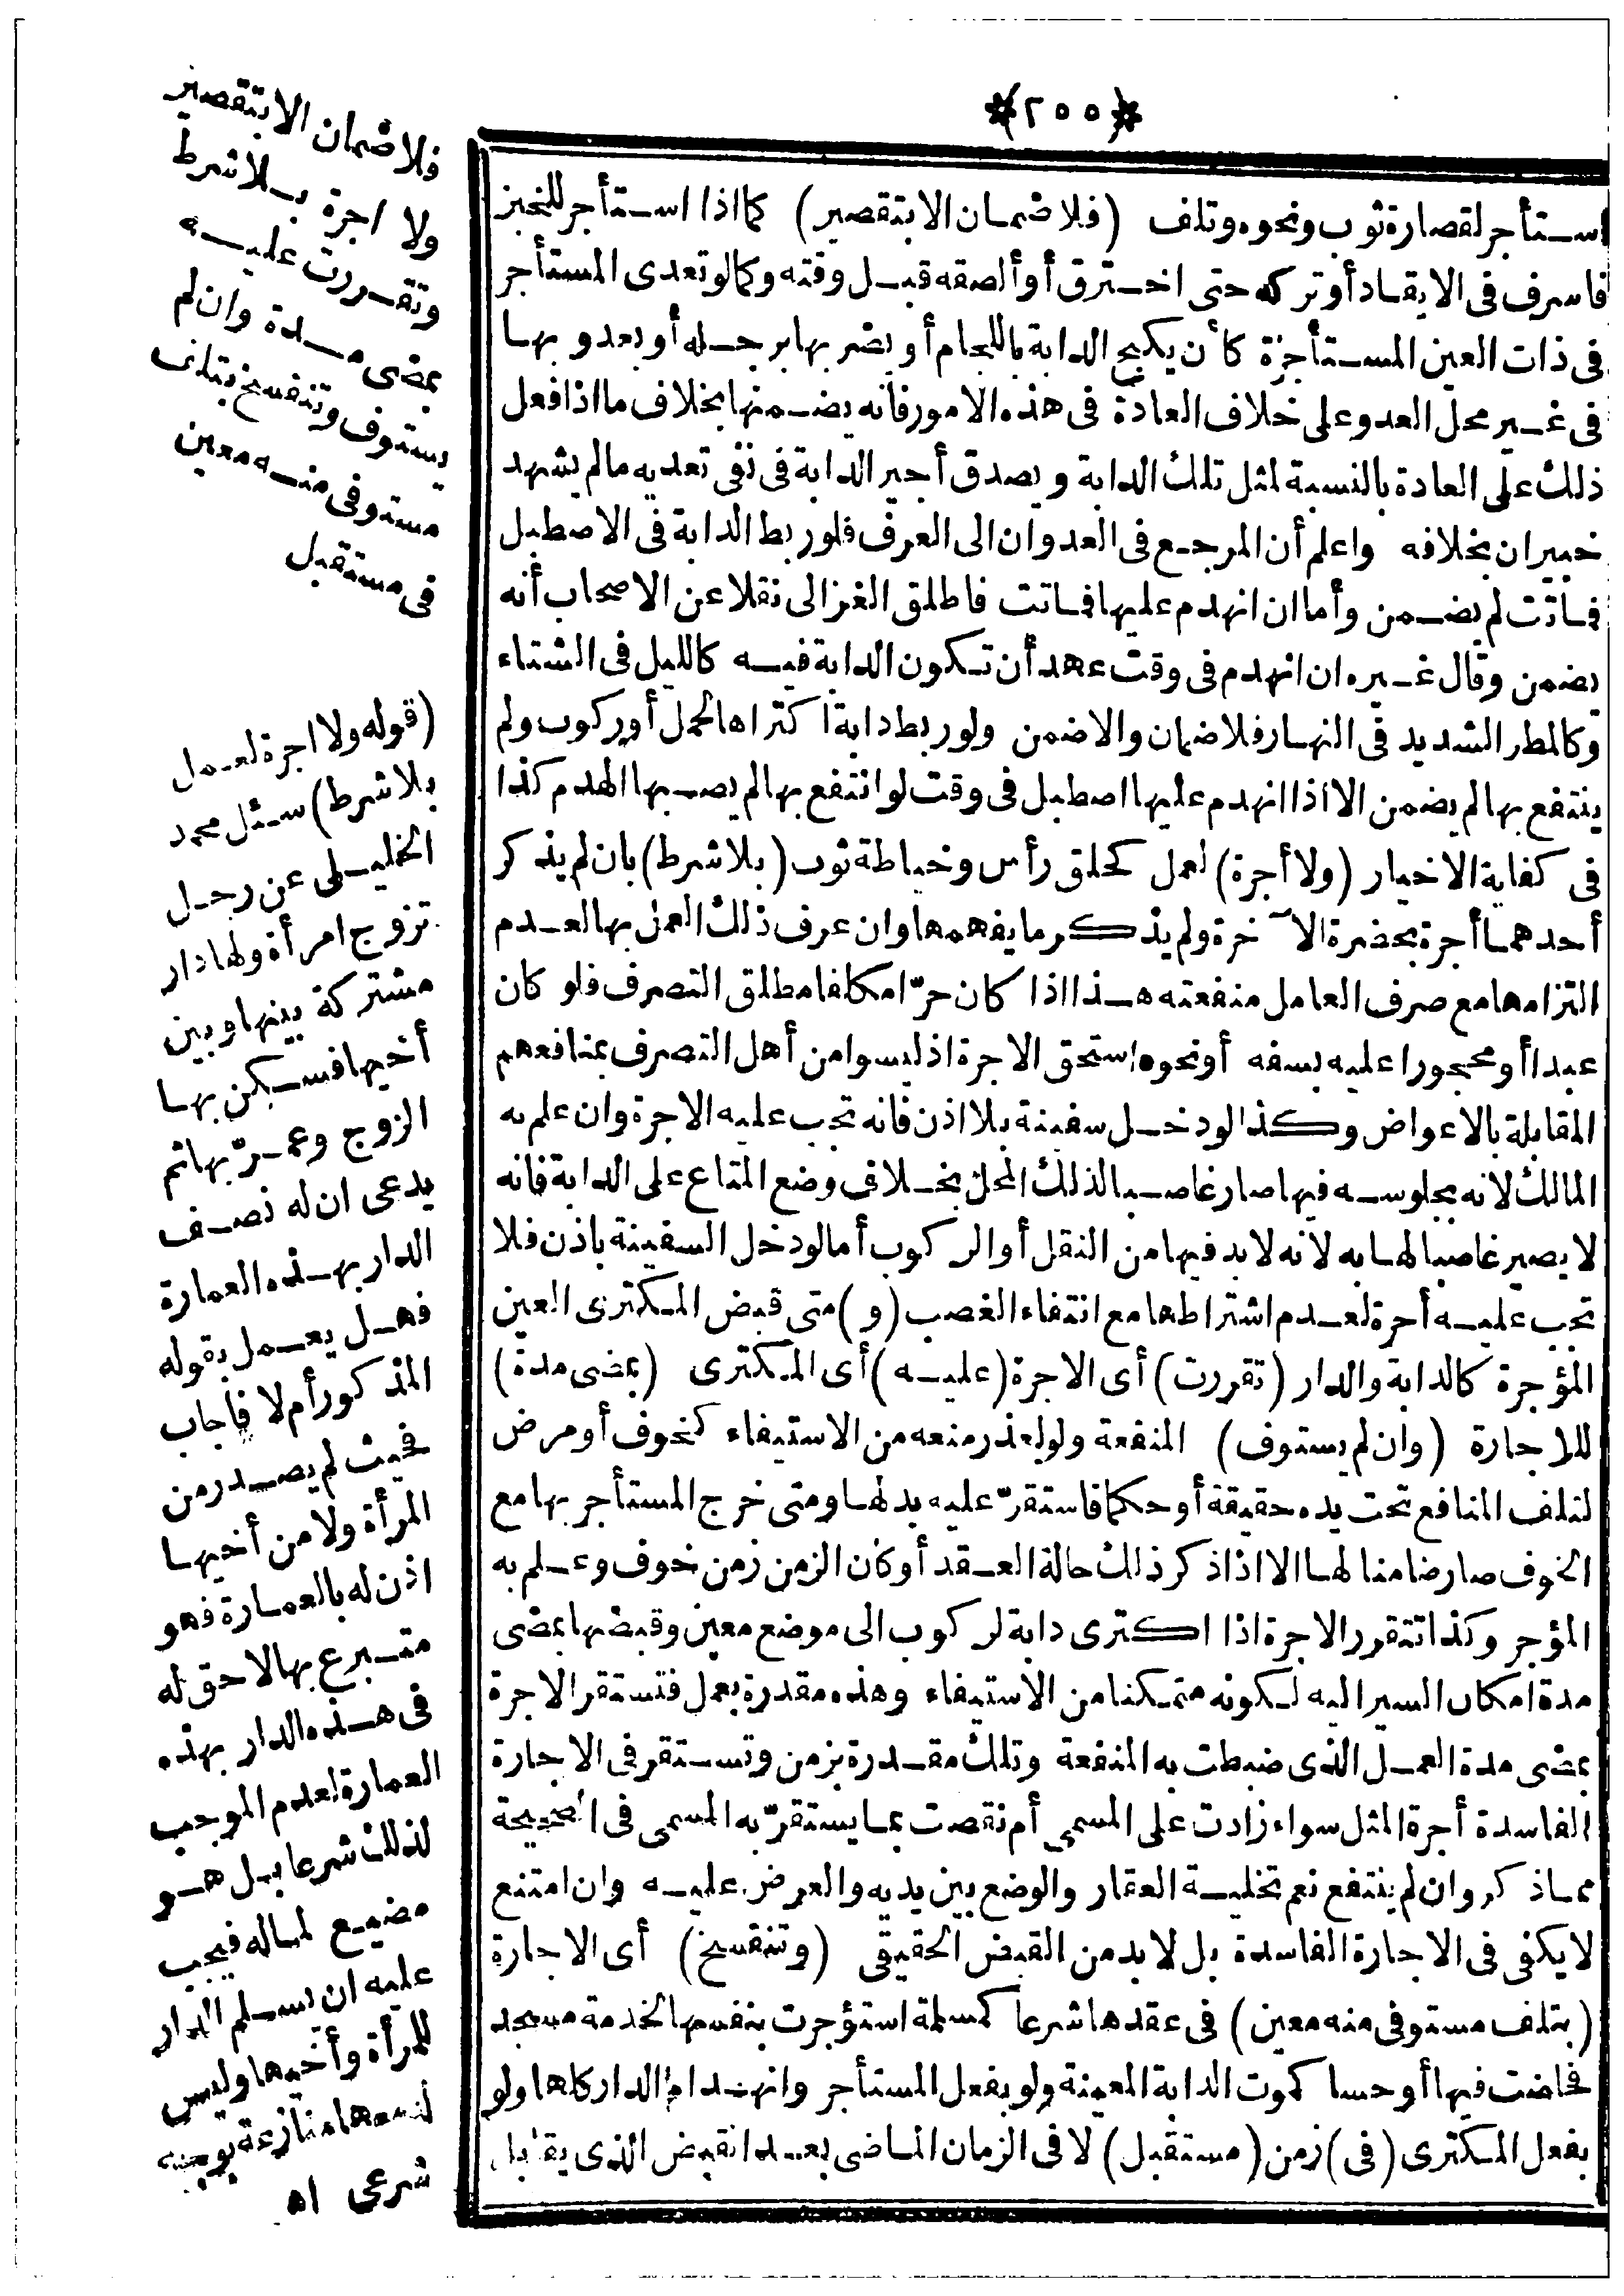 *(٢٥٥)*
استأجر لقصارة ثوب ونحوه وتلف (فلا ضمان الا بتقصير) كما اذا استأجر للخبز
فاسرف فى الايقاد أو تركه حتى احترق أو ألصقه قبل وقته وكما لو تعدى المستأجر
فى ذات العين المستأجرة كأن يكبح الدابة باللجام أو يضربها برجله أو يعدو بها
فى غير محل العدو على خلاف العادة فى هذه الامور فانه يضمنها بخلاف ما اذا فعل
ذلك على العادة بالنسبة لمثل تلك الدابة ويصدق أجير الدابة فى نفى تعديه ما لم يشهد
خبيران بخلافه واعلم أن المرجع فى العدوان الى العرف فلو ربط الدابة فى الاصطبل
فماتت لم يضمن وأما ان انهدم عليها فماتت فاطلق الغزالى نقلا عن الاصحاب أنه
يضمن وقال غيره ان انهدم فى وقت عهد أن تكون الدابة فيه كالليل فى الشتاء
وكالمطر الشديد فى النهار فلا ضمان والا ضمن ولو ربط دابة اكتراها لحمل أو ركوب ولم
ينتفع بها لم يضمن الا اذا انهدم عليها اصطبل فى وقت لو انتفع بها لم يصبها الهدم كذا
فى كفاية الاخيار (ولا أجرة) لعمل كحلق رأس وخياطة ثوب (بلا شرط) بان لم يذكر
أحدهما أجرة بحضرة الآخرة ولم يذكر ما يفهمها وان عرف ذلك العمل بها لعدم
التزامها مع صرف العامل منفعته هذا اذا كان حرّا مكلفا مطلق التصرف فلو كان
عبدا أو محجورا عليه بسفه أو نحوه استحق الاجرة اذ ليسوا من أهل التصرف بمنافعهم
المقابلة بالاعواض وكذا لو دخل سفينة بلا اذن فانه تجب عليه الاجرة وان علم به
المالك لانه بجلوسه فيها صار غاصبا لذلك المحل بخلاف وضع المتاع على الدابة فانه
لا يصير غاصبا لها به لانه لا بد فيها من النقل أو الركوب أما لو دخل السفينة باذن فلا
تجب عليه أجرة لعدم اشتراطها مع انتفاء الغصب (و) متى قبض المكترى العين
المؤجرة كالدابة والدار (تقررت) أى الاجرة (عليه) أى المكترى (بمضى مدة)
للاجارة (وان لم يستوف) المنفعة ولو لعذر منعه من الاستيفاء كخوف أو مرض
لتلف المنافع تحت يده حقيقة أو حكما فاستقرّ عليه بدلها ومتى خرج المستأجر بها مع
الخوف صار ضامنا لها الا اذا ذكر ذلك حالة العقد أو كان الزمن زمن خوف وعلم به
المؤجر وكذا تتقرر الاجرة اذا اكترى دابة لركوب الى موضع معين وقبضها بمضى
مدة امكان السير اليه لكونه متمكنا من الاستيفاء وهذه مقدرة بعمل فتستقر الاجرة
بمضى مدة العمل الذى ضبطت به المنفعة وتلك مقدرة بزمن وتستقر فى الاجارة
الفاسدة أجرة المثل سواء زادت على المسمى أم نقصت بما يستقرّ به المسمى فى الصحيحة
مما ذكر وان لم ينتفع نعم تخلية العقار والوضع بين يديه والعرض عليه وان امتنع
لا يكفى فى الاجارة الفاسدة بل لا بد من القبض الحقيقى (وتنفسخ) أى الاجارة
(بتلف مستوفى منه معين) فى عقدها شرعا كمسلمة استؤجرت بنفسها لخدمة مسجد
فحاضت فيها أو حسا كموت الدابة المعينة ولو بفعل المستأجر وانهدام الدار كلها ولو
بفعل المكترى (فى) زمن (مستقبل) لا فى الزمان الماضى بعد القبض الذى يقابل
فلا ضمان الا بتقصير
ولا اجرة بلا شرط
وتقررت عليه
بمضى مدة وان لم
يستوف وتنفسخ بتلف
مستوفى منه معين
فى مستقبل
(قوله ولا اجرة لعمل
بلا شرط) سئل محمد
الخليلى عن رجل
تزوج امرأة ولها دار
مشتركة بينها وبين
أخيها فسكن بها
الزوج وعمرّ بها ثم
يدعى ان له نصف
الدار بهذه العمارة
فهل يعمل بقوله
المذكور أم لا فأجاب
فحيث لم يصدر من
المرأة ولا من أخيها
اذن له بالعمارة فهو
متبرع بها لا حق له
فى هذه الدار بهذه
العمارة لعدم الموجب
لذلك شرعا بل هو
مضيع لماله فيجب
عليه ان يسلم الدار
للمرأة وأخيها وليس
منازعة بوجه
شرعى اه